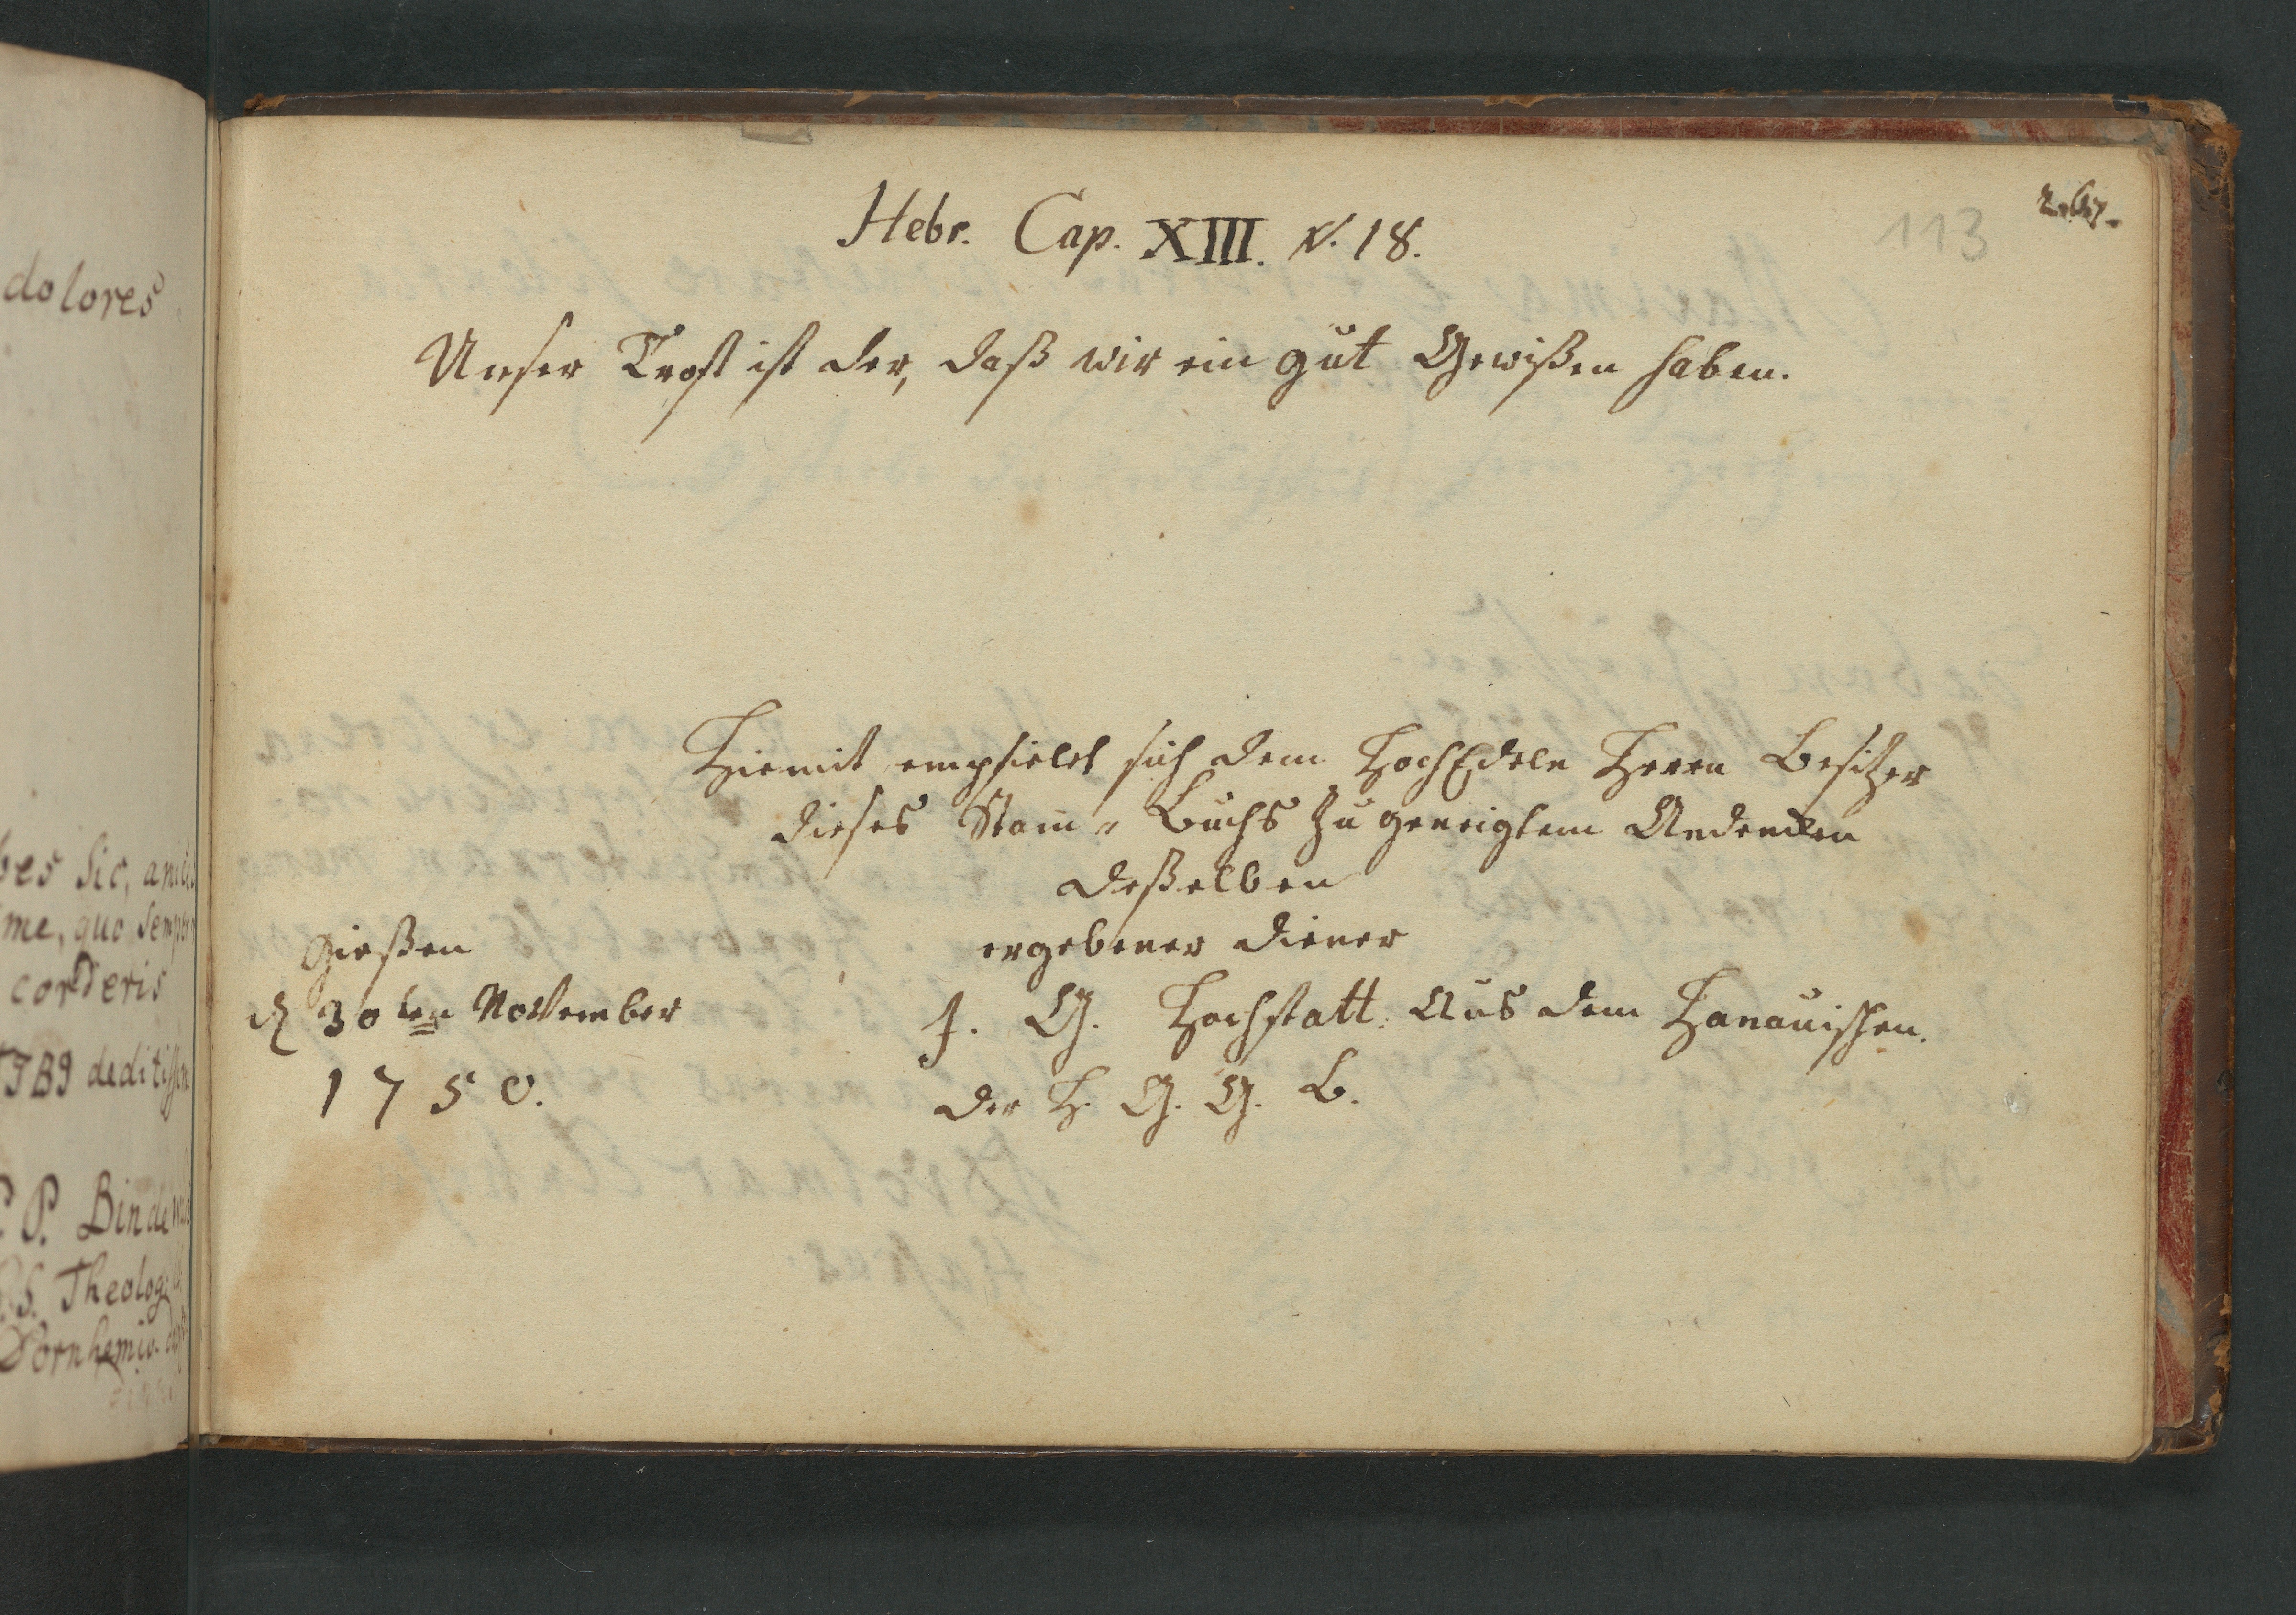 dolores
bes sic, amicis
me, quo semper
corderis
TIBI deditissim
P. Bindewa
S. Theolog.
Dornhemio
113
Hebr. Cap. XIII. V. 18.
Unser Trost ist der, daß wir ein gut Gewißen haben.
Hiemit empfielet sich dem HochEdeln Herrn Besitzer
dieses Stam̄-Buchs zu geneigtem Andencken
deßelben
ergebener Diener
J. G. Hochstatt. Aus dem Hanauischen.
der H. G. G. B.
Gießen
d 30ten November
1750.